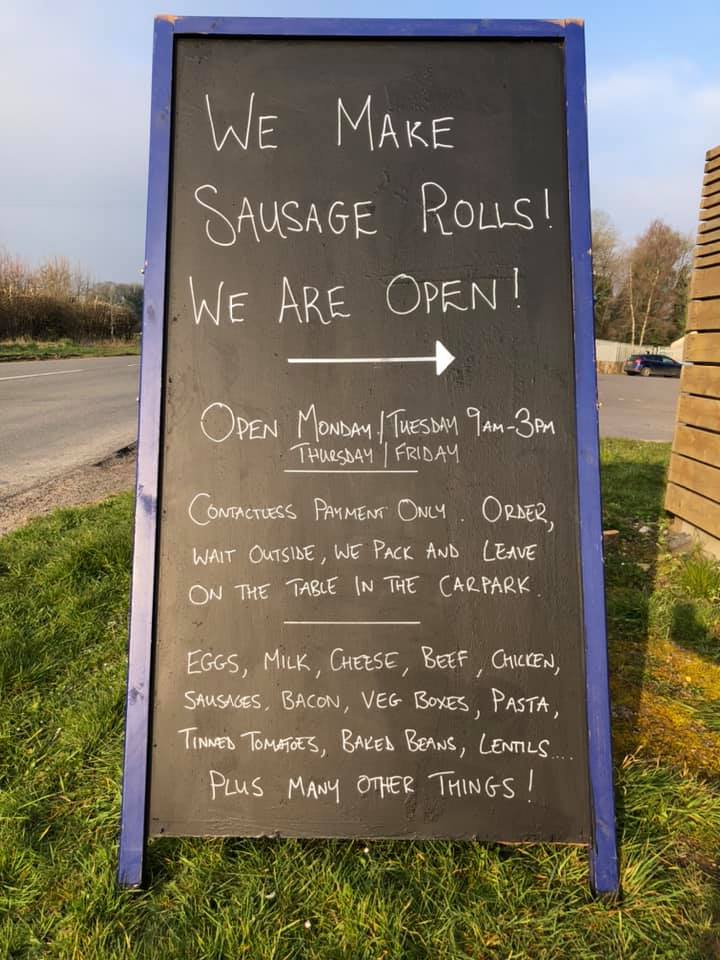 We Make
Sausage Rolls!
We Are Open!
Open Monday/Tuesday 9am-3pm
Thursday/Friday
Contactless Payment Only. Order,
Wait Outside, We Pack And Leave
On The Table In The Carpark.
Eggs, Milk, Cheese, Beef, Chicken,
Sausages, Bacon, Veg Boxes, Pasta,
Tinned Tomatoes, Baked Beans, Lentils....
Plus Many Other Things!